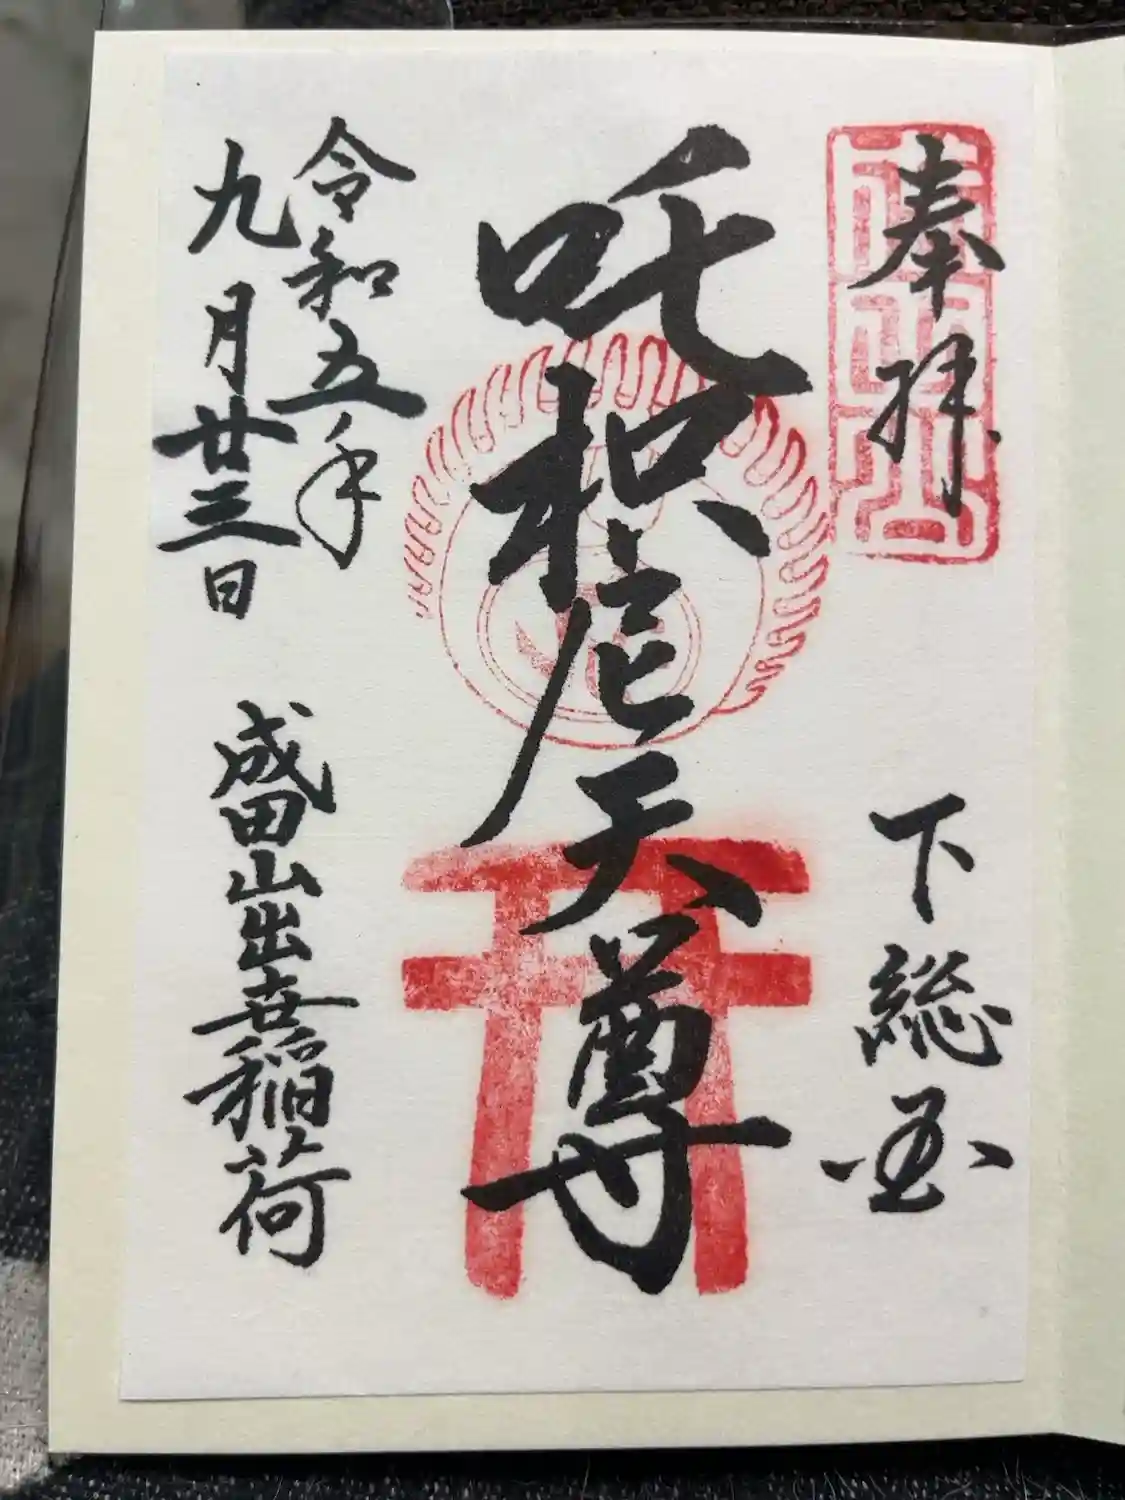 奉拝
下総国
成田山
吒枳尼天尊
令和五年
九月廿三日
成田山出世稲荷